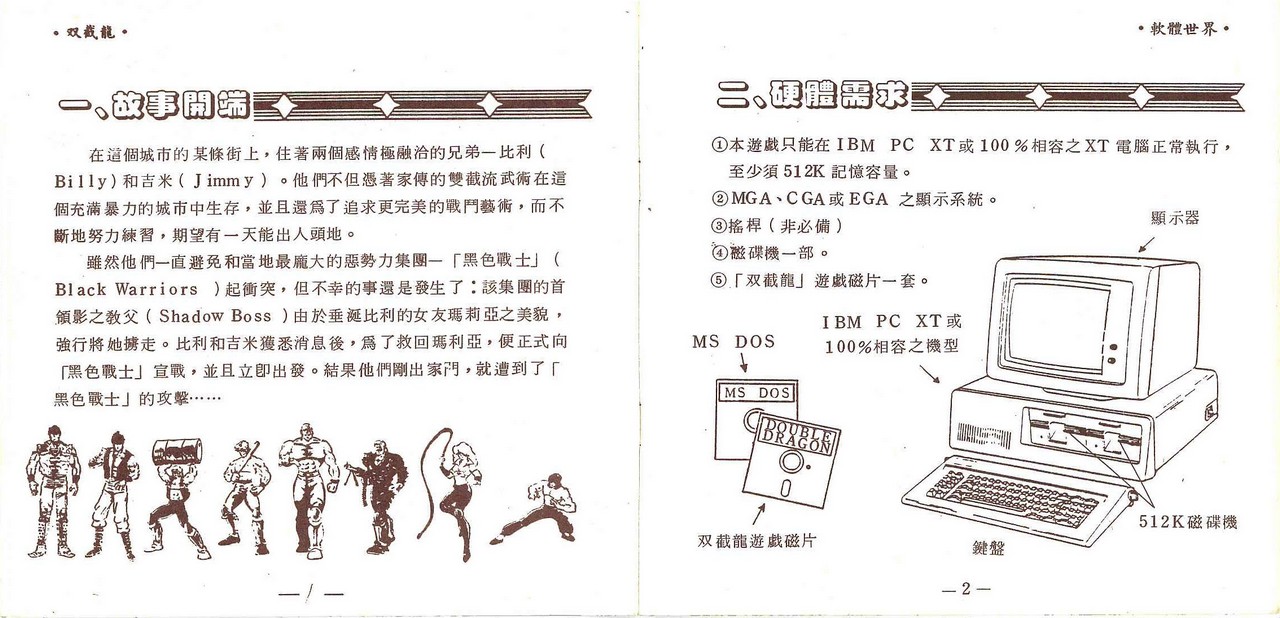 • 双截龍 •
一、故事開端
在這個城市的某條街上，住著兩個感情極融洽的兄弟─比利（
Billy）和吉米（Jimmy）。他們不但憑著家傳的雙截流武術在這
個充滿暴力的城市中生存，並且還爲了追求更完美的戰鬥藝術，而不
斷地努力練習，期望有一天能出人頭地。
雖然他們一直避免和當地最龐大的惡勢力集團─「黑色戰士」（
Black Warriors ）起衝突，但不幸的事還是發生了：該集團的首
領影之教父（Shadow Boss）由於垂涎比利的女友瑪莉亞之美貌，
強行將她擄走。比利和吉米獲悉消息後，爲了救回瑪利亞，便正式向
「黑色戰士」宣戰，並且立即出發。結果他們剛出家門，就遭到了「
黑色戰士」的攻擊……
—1—
• 軟體世界 •
二、硬體需求
①本遊戲只能在IBM PC XT或100％相容之XT電腦正常執行，
至少須512K記憶容量。
②MGA、CGA或EGA 之顯示系統。
③搖桿（非必備）
④磁碟機一部。
⑤「双截龍」遊戲磁片一套。
顯示器
IBM PC XT或
100%相容之機型
MS DOS
MS DOS
DOUBLE
DRAGON
512K磁碟機
双截龍遊戲磁片
鍵盤
—2—